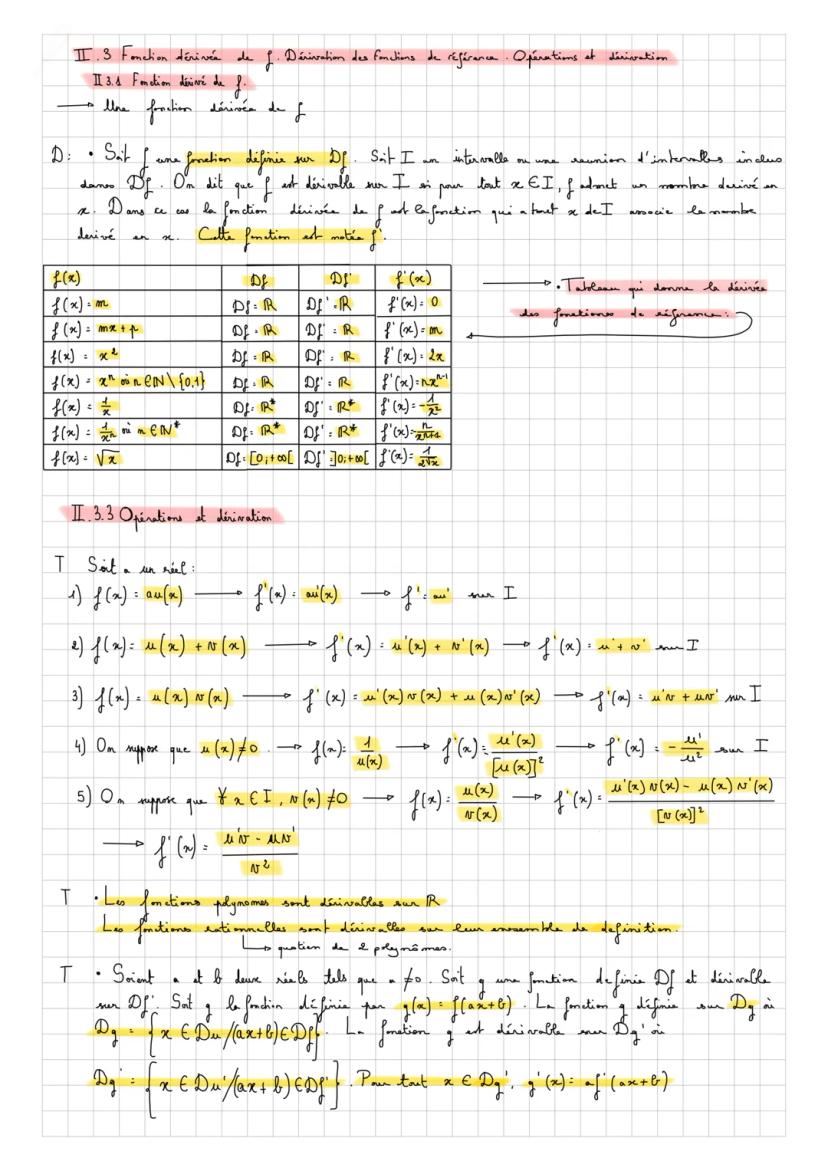 II.3 Fonction dérivée de f. Dérivation des fonctions de référence. Opérations et dérivation
II 3.1 Fonction dérivé de f.
→ Une fonction dérivée de f
D: • Soit f une fonction définie sur Df. Soit I un intervalle ou une reunion d'intervalles inclus
dans Df. On dit que f est dérivable sur I si pour tout x ∈ I, f admet un nombre derivé en
x. Dans ce cas la fonction dérivée de f est la fonction qui a tout x de I associe le nombre
derivé en x. Cette fonction est notée f'.
f(x) Df Df' f'(x)
f(x) = m Df = ℝ Df' = ℝ f'(x) = 0
f(x) = mx + p Df = ℝ Df' = ℝ f'(x) = m
f(x) = x² Df = ℝ Df' = ℝ f'(x) = 2x
f(x) = xⁿ où n ∈ ℕ \ {0,1} Df = ℝ Df' = ℝ f'(x) = nxⁿ⁻¹
f(x) = 1/x Df = ℝ* Df' = ℝ* f'(x) = -1/x²
f(x) = 1/xⁿ où n ∈ ℕ* Df = ℝ* Df' = ℝ* f'(x) = -n/xⁿ⁺¹
f(x) = √x Df = [0;+∞[ Df' = ]0;+∞[ f'(x) = 1/2√x
→ • Tableau qui donne la dérivée
des fonctions de référence :
II.3.3 Opérations et dérivation
T Soit a un réel :
1) f(x) = au(x) → f'(x) = au'(x) → f' = au' sur I
2) f(x) = u(x) + v(x) → f'(x) = u'(x) + v'(x) → f'(x) = u' + v' sur I
3) f(x) = u(x) v(x) → f'(x) = u'(x) v(x) + u(x) v'(x) → f'(x) = u'v + uv' sur I
4) On suppose que u(x) ≠ 0. → f(x) = 1/u(x) → f'(x) = u'(x)/[u(x)]² → f'(x) = - u'/u² sur I
5) On suppose que ∀ x ∈ I, v(x) ≠ 0 → f(x) = u(x)/v(x) → f'(x) = u'(x) v(x) - u(x) v'(x)/[v(x)]²
→ f'(x) = u'v - uv'/v²
T • Les fonctions polynomes sont dérivables sur ℝ
Les fontions rationnelles sont dérivables sur leur ensemble de definition.
↳ quotien de 2 polynômes.
T • Soient a et b deux réels tels que a ≠ 0. Soit g une fonction definie Df et dérivable
sur Df'. Soit g la fonction définie par g(x) = f(ax+b). La fonction g définie sur Dg où
Dg = {x ∈ Du/(ax+b) ∈ Df}. La fonction g est dérivable sur Dg' où
Dg' = {x ∈ Du'/(ax+b) ∈ Df'}. Pour tout x ∈ Dg', g'(x) = af'(ax+b)